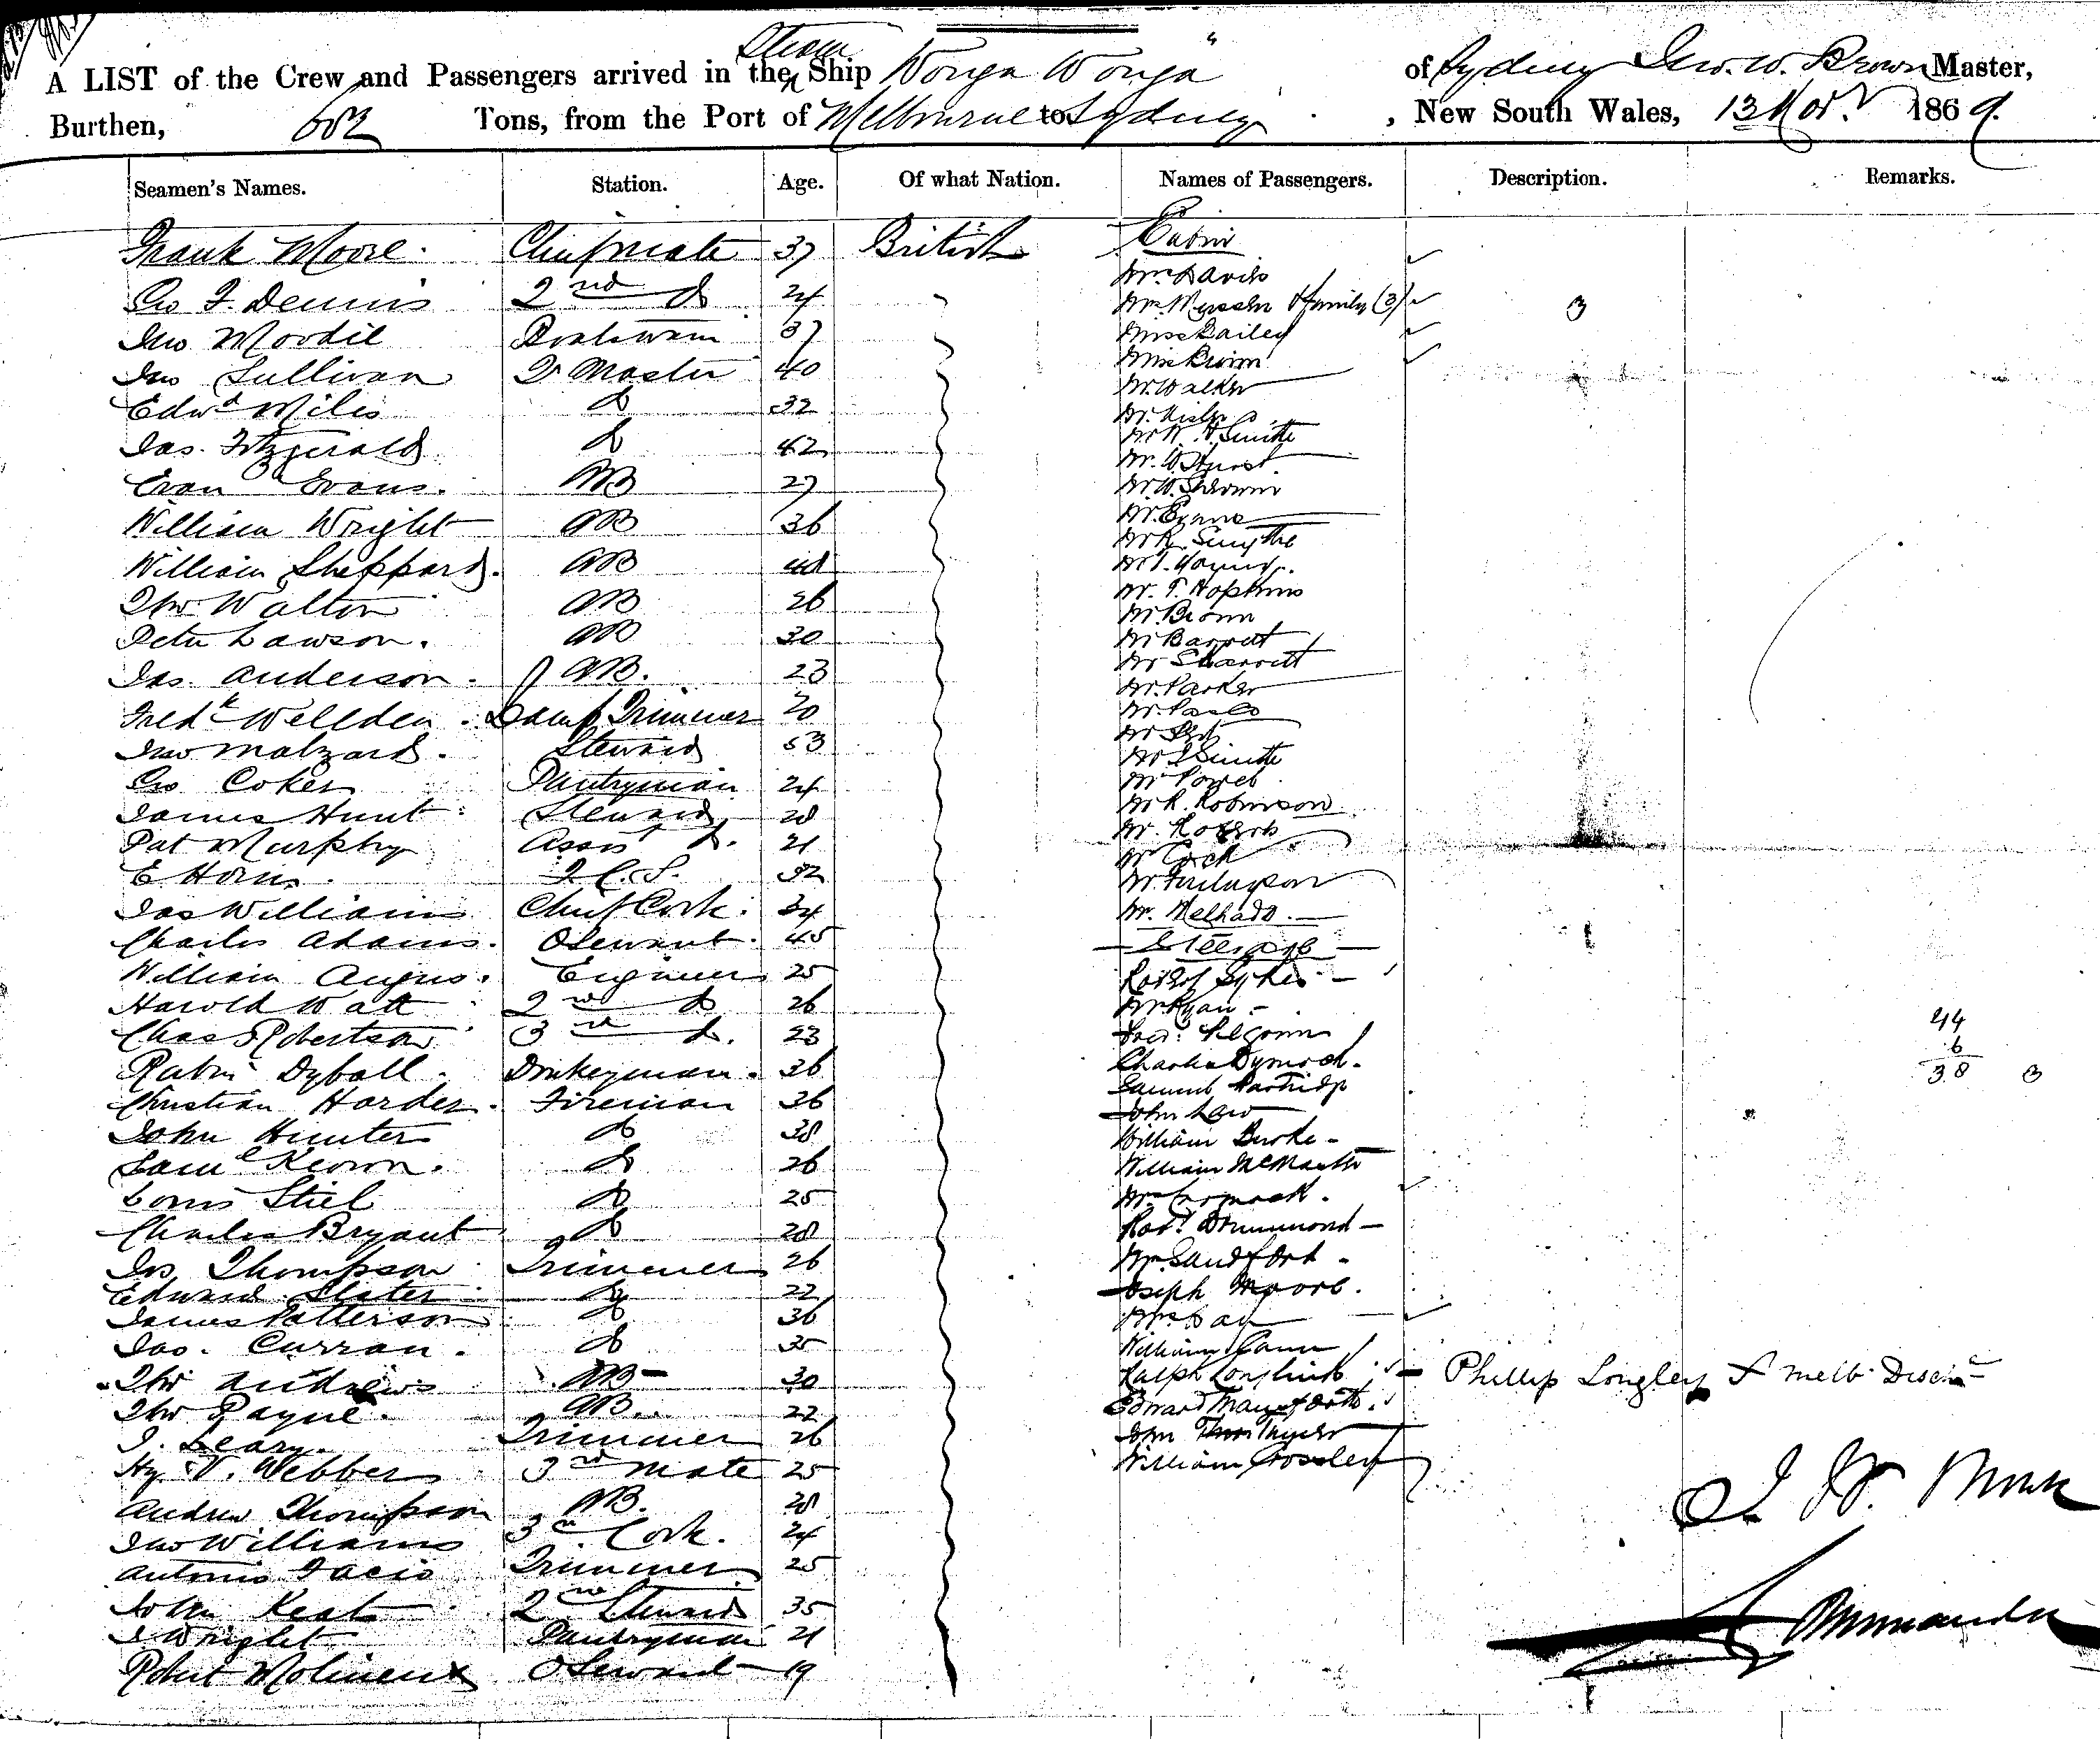 A LIST of the Crew and Passengers arrived in the Steam Ship Wonga Wonga " of Sydney Jno. W. Brown Master,
Burthen, 682 Tons, from the Port of Melbourne to Sydney, New South Wales, 13 Nov.r 1869.
Seamen's Names. Station. Age. Of what Nation. Names of Passengers. Description. Remarks.
Frank Moore Chief mate 37 British
Geo F. Dennis 2nd do 24
Jno Moodie Boatswain 37
Jno Sullivan Qr Master 40
Edwd Miles do 32
Jas. Fitzgerald do 42
Evan Evans. AB 27
William Wright AB 36
William Sheppard. AB
Thos Walton AB 26
Peter Lawson. AB 30
Jas. Anderson. AB. 23
Fredk Wellden. Lamp Trimmer 20
Jno Malzard. Steward 53
Geo Coker Pantryman 24
James Hunt Steward 28
Pat Murphy Asst do. 21
E Horn. 32
Jas Williams Chief Cook. 34
Charles Adams. 45
William Angus. Engineer 25
Harold Watt 2nd do 26
Chas Robertson 3rd do. 23
Dyball. Donkeyman. 36
Christian Harder. Fireman 36
John Hunter do 38
Saml Keown. do 26
Louis Stiel do 25
Charles Bryant do 28
Jos Thompson Trimmer 26
Edward Slater do 22
James Patterson do 36
Jas. Curran. do 35
Thos Andrews AB 30
Thos Payne. AB. 22
J. Leary. Trimmer 26
Hy V. Webber 3rd Mate 25
Andrew Thompson AB. 28
Jno Williams 3rd Cook. 24
Antonio Facio Trimmer 25
John Keat 2nd Steward 35
J Wright Pantryman 21
Robert Molineux 19
Cabin
Mrs Davis
Mrs & family (3) 3
Miss Bailey
Miss Brown
Mr Walker
Mr.
Mr W. H Smith
Mr. W Hurst
Mr W. Sherwin
Mr. Evans
Mr R. Smythe
Mr J. Young.
Mr. T. Hopkins
Mr. Brown
Mr Barrett
Mr Sharrott
Mr. Parker
Mr.
Mr
Mr J Smith
Mr Power
Mr R. Robinson
Mr. Roberts
Mr Cock
Mr. Finlayson
Mr. Melhado.
Steerage
Robert Sykes
Mr Ryan
Charles Dymock.
Samuel Partridge
John Law
William Burke
William McMaster
Mrs Cormack.
Robt Drummond
Mr Sandford
Joseph Moore.
Mrs Day
William Gann
Ralph Phillip Longley f Melb Disch
Edward
John
William Crossley
44
6
38 3
J W. Brown
Commander